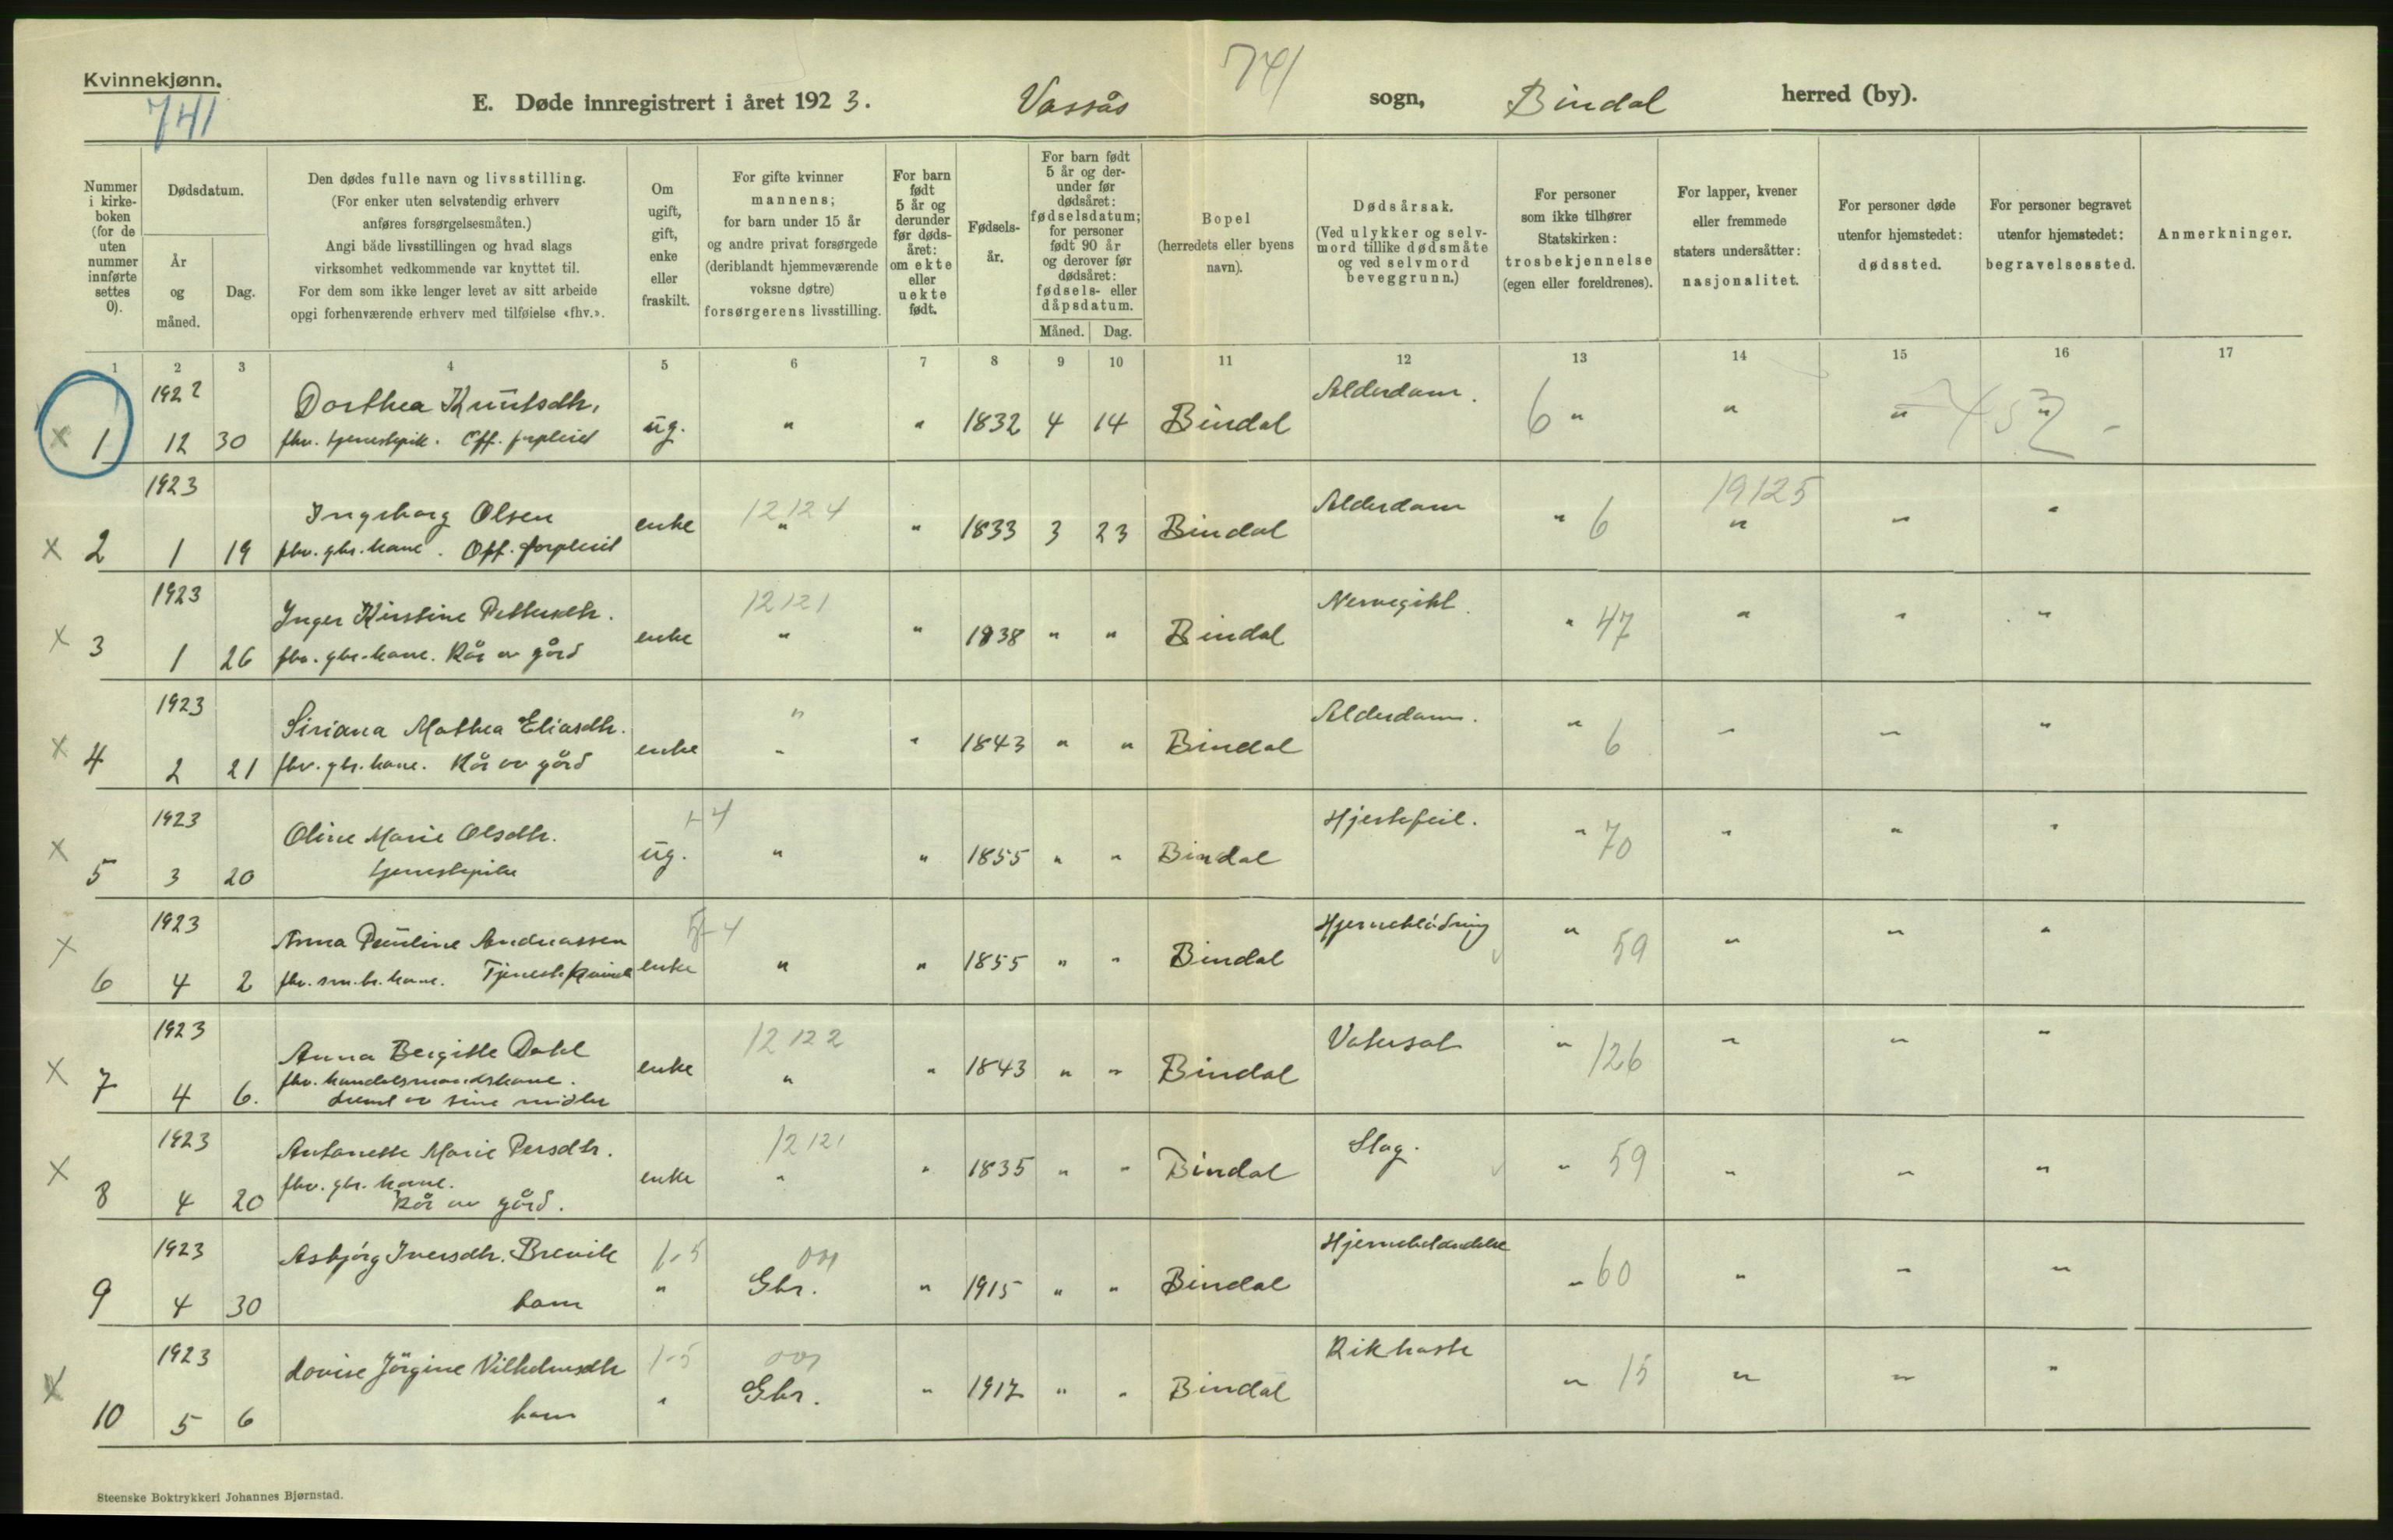 Kvinnekjønn.
741
741
E. Døde innregistrert i året 1923. Vassås sogn, Bindal herred (by).
Nummer i kirke- boken (for de uten nummer innførte settes 0).
Dødsdatum.
År og måned.
Dag.
Den dødes fulle navn og livsstilling.
(For enker uten selvstendig erhverv
anføres forsørgelsesmåten.)
Angi både livsstillingen og hvad slags
virksomhet vedkommende var knyttet til.
For dem som ikke lenger levet av sitt arbeide
opgi forhenværende erhverv med tilføielse «fhv.».
Om ugift, gift, enke eller fraskilt.
For gifte kvinner
mannens;
for barn under 15 år
og andre privat forsørgede
(deriblandt hjemmeværende
voksne døtre)
forsørgerens livsstilling.
For barn født 5 år og derunder før døds- året: om ekte eller uekte født.
Fødsels- år.
For barn født 5 år og der- under før dødsåret: fødselsdatum; for personer født 90 år og derover før dødsåret: fødsels- eller dåpsdatum.
Måned. Dag.
Bopel
(herredets eller byens
navn).
Dødsårsak.
(Ved ulykker og selv-
mord tillike dødsmåte
og ved selvmord
beveggrunn.)
For personer
som ikke tilhører
Statskirken:
trosbekjennelse
(egen eller foreldrenes).
For lapper, kvener
eller fremmede
staters undersåtter:
nasjonalitet.
For personer døde
utenfor hjemstedet:
dødssted.
For personer begravet
utenfor hjemstedet:
begravelsessted.
Anmerkninger.
1 2 3 4 5 6 7 8 9 10 11 12 13 14 15 16 17
1922 Dorthea Knutsdtr. Alderdom.
x 1 12 30 fhv. tjenestepik. Off. forpleiet ug. " " 1832 4 14 Bindal 6 " " " "
1923 Ingeborg Olsen 12124 Alderdom 19125
x 2 1 19 fhv. gbr. kone. Off. forpleiet enke " " 1833 3 23 Bindal " 6 " " "
1923 Inger Kirstine Pettersdtr. 12121 Nervegikt.
x 3 1 26 fhv. gbr. kone. Kår av gård enke " " 1838 " " Bindal " 47 " " "
1923 Siriana Mathea Eliasdtr. " Alderdom.
x 4 2 21 fhv. gbr. kone. Kår av gård enke " " 1843 " " Bindal " 6 " " "
1923 Oline Marie Olsdtr. Hjertefeil.
x 5 3 20 tjenestepike ug. " " 1855 " " Bindal " 70 " " "
1923 Anna Pauline Andreassen Hjerneblødning
x 6 4 2 fhv. sm.br. kone. enke " " 1855 " " Bindal " 59 " " "
1923 Anna Bergitte Dahl 12122 Vatersot
x 7 4 6. fhv. handelsmandskone. enke " " 1843 " " Bindal " 126 " " "
levet av sine midler
1923 Antonette Marie Persdtr. 12121 Slag.
x 8 4 20 fhv. gbr. kone. enke " " 1835 " " Bindal " 59 " " "
Kår av gård.
1923 Asbjørg Iversdtr. Brevik 1-5 001 Hjernebetændelse
9 4 30 barn " Gbr. " 1915 " " Bindal " 60 " " "
1923 Lovise Jörgine Vilhelmsdtr 1-5 001 Kikhoste
x 10 5 6 barn " Gbr. " 1917 " " Bindal " 15 " " "
Steenske Boktrykkeri Johannes Bjørnstad.